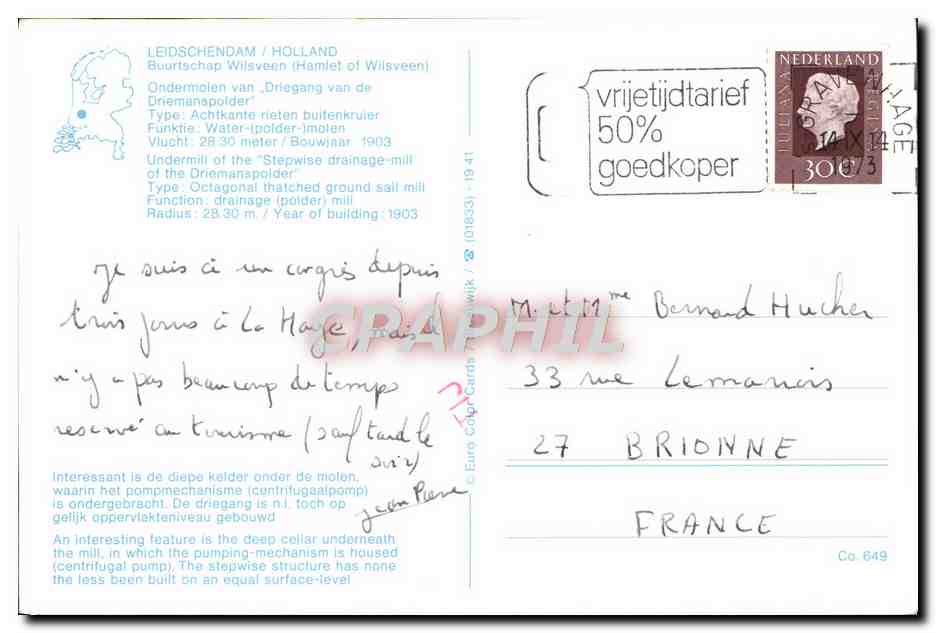 LEIDSCHENDAM / HOLLAND
Buurtschap Wilsveen (Hamlet of Wilsveen)
Ondermolen van „Driegang van de
Driemanspolder"
Type: Achtkante rieten buitenkruier
Funktie: Water-(polder-)molen
Vlucht: 28.30 meter / Bouwjaar 1903
Undermill of the "Stepwise drainage-mill
of the Driemanspolder"
Type: Octagonal thatched ground sail mill
Function: drainage (polder) mill
Radius: 28.30 m. / Year of building: 1903
je suis à un congrès depuis
trois jours à La Haye, mais il
n'y a pas beaucoup de temps
reservé au tourisme (sauf tard le
soir)
Jean Pierre
Interessant is de diepe kelder onder de molen,
waarin het pompmechanisme (centrifugaalpomp)
is ondergebracht. De driegang is n.l. toch op
gelijk oppervlakteniveau gebouwd
An interesting feature is the deep cellar underneath
the mill, in which the pumping-mechanism is housed
(centrifugal pump). The stepwise structure has none
the less been built on an equal surface-level
© Euro Color Cards / ☎ (01833) - 19 41
CPAPHIL
vrijetijdtarief
50%
goedkoper
NEDERLAND
JULIANA REGINA
30c
'S-GRAVENHAGE
14.IX 14
1973
M. et Mme Bernard Hucher
33 rue Lemarrois
27 BRIONNE
FRANCE
Co. 649